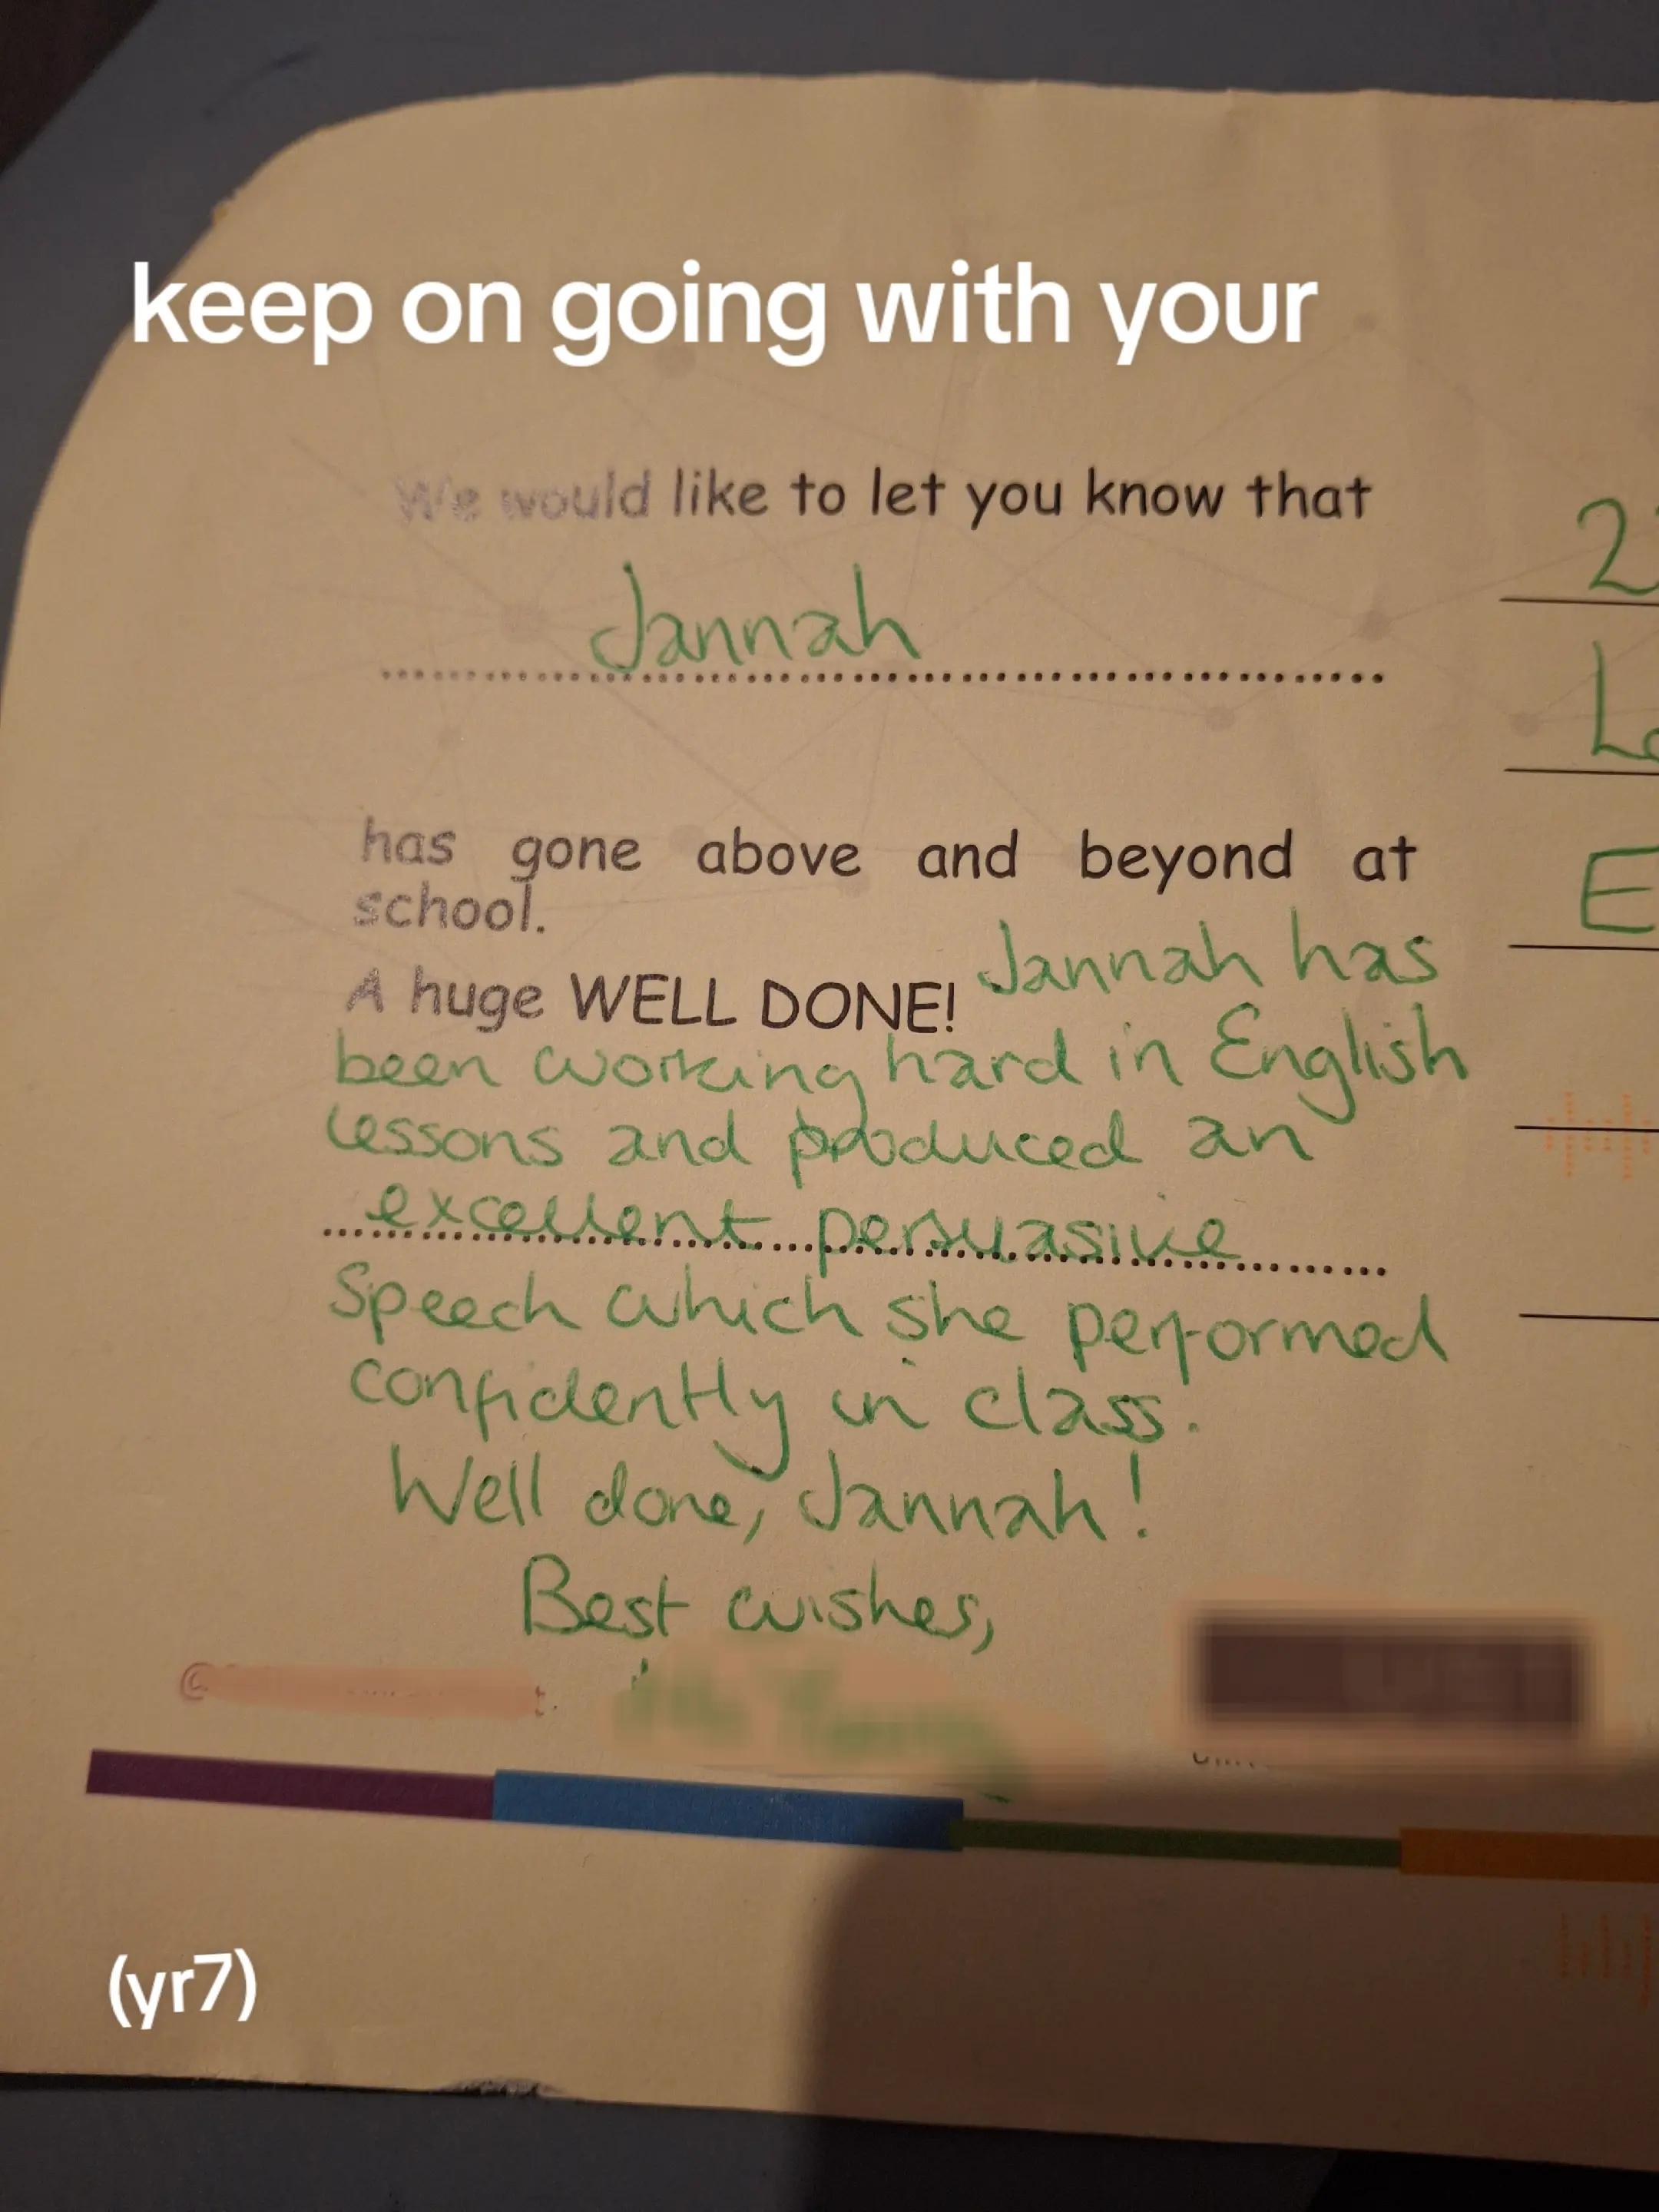 keep on going with your
We would like to let you know that
Jannah
has gone above and beyond at
school.
A huge WELL DONE! Jannah has
been working hard in English
lessons and produced an
excellent persuasive
Speech which she performed
confidently in class.
Well done, Jannah!
Best wishes,
(yr7)